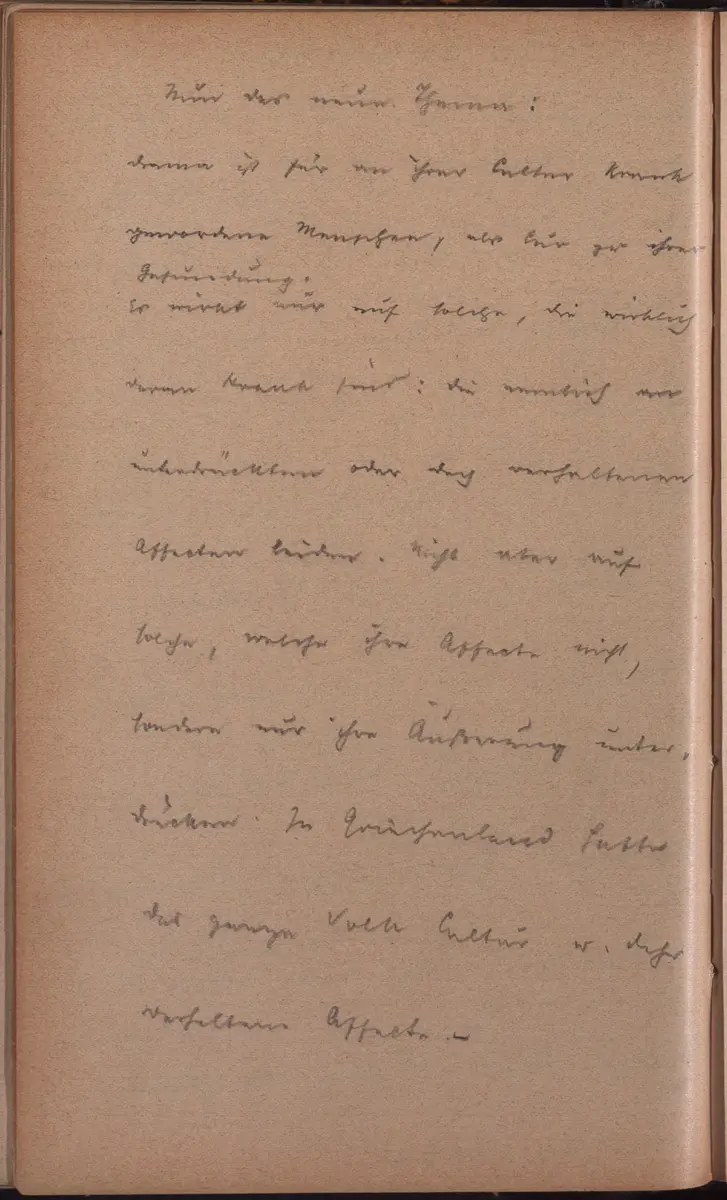 Nun das neue Thema:
drama ist für an ihrer Cultur krank
gewordene Menschen, als Cur zu ihrer
Gesundung.
Es wirkt nur auf solche, die wirklich
daran krank sind: die nemlich an
unterdrückten oder doch verhaltenen
Affecten leiden. Nicht aber auf
solche, welche ihre Affecte nicht,
sondern nur ihre Äußerung unter-
drücken. In Griechenland hatte
das ganze Volk Cultur u. daher
verhaltene Affecte. –